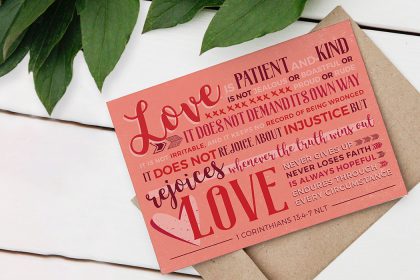 Love is PATIENT AND KIND
IS NOT JEALOUS OR BOASTFUL OR
XXXXXXXXX PROUD OR RUDE
IT DOES NOT DEMAND ITS OWN WAY
IT IS NOT IRRITABLE, AND IT KEEPS NO RECORD OF BEING WRONGED
IT DOES NOT REJOICE ABOUT INJUSTICE BUT
rejoices whenever the truth wins out
LOVE
NEVER GIVES UP
NEVER LOSES FAITH
IS ALWAYS HOPEFUL
ENDURES THROUGH
EVERY CIRCUMSTANCE
1 CORINTHIANS 13:4-7 NLT